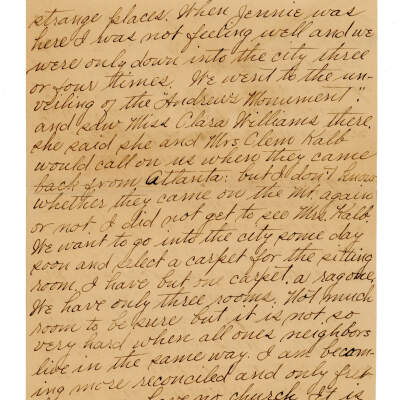 strange places. When Jennie was
here I was not feeling well and we
were only down into the city three
or four times. We went to the un-
veiling of the "Andrews Monument".
and saw Miss Clara Williams there.
she said she and Mrs. Clem Kalb
would call on us when they came
back from Atlanta: but I don't know
whether they came on the Mt. again
or not. I did not get to see Mrs. Kalb.
We want to go into the city some day
soon and select a carpet for the sitting
room. I have but one carpet. a rag one,
We have only three rooms. Not much
room to be sure but it is not so
very hard when all ones neighbors
live in the same way. I am becom-
ing more reconciled and only fret
have no church. It is